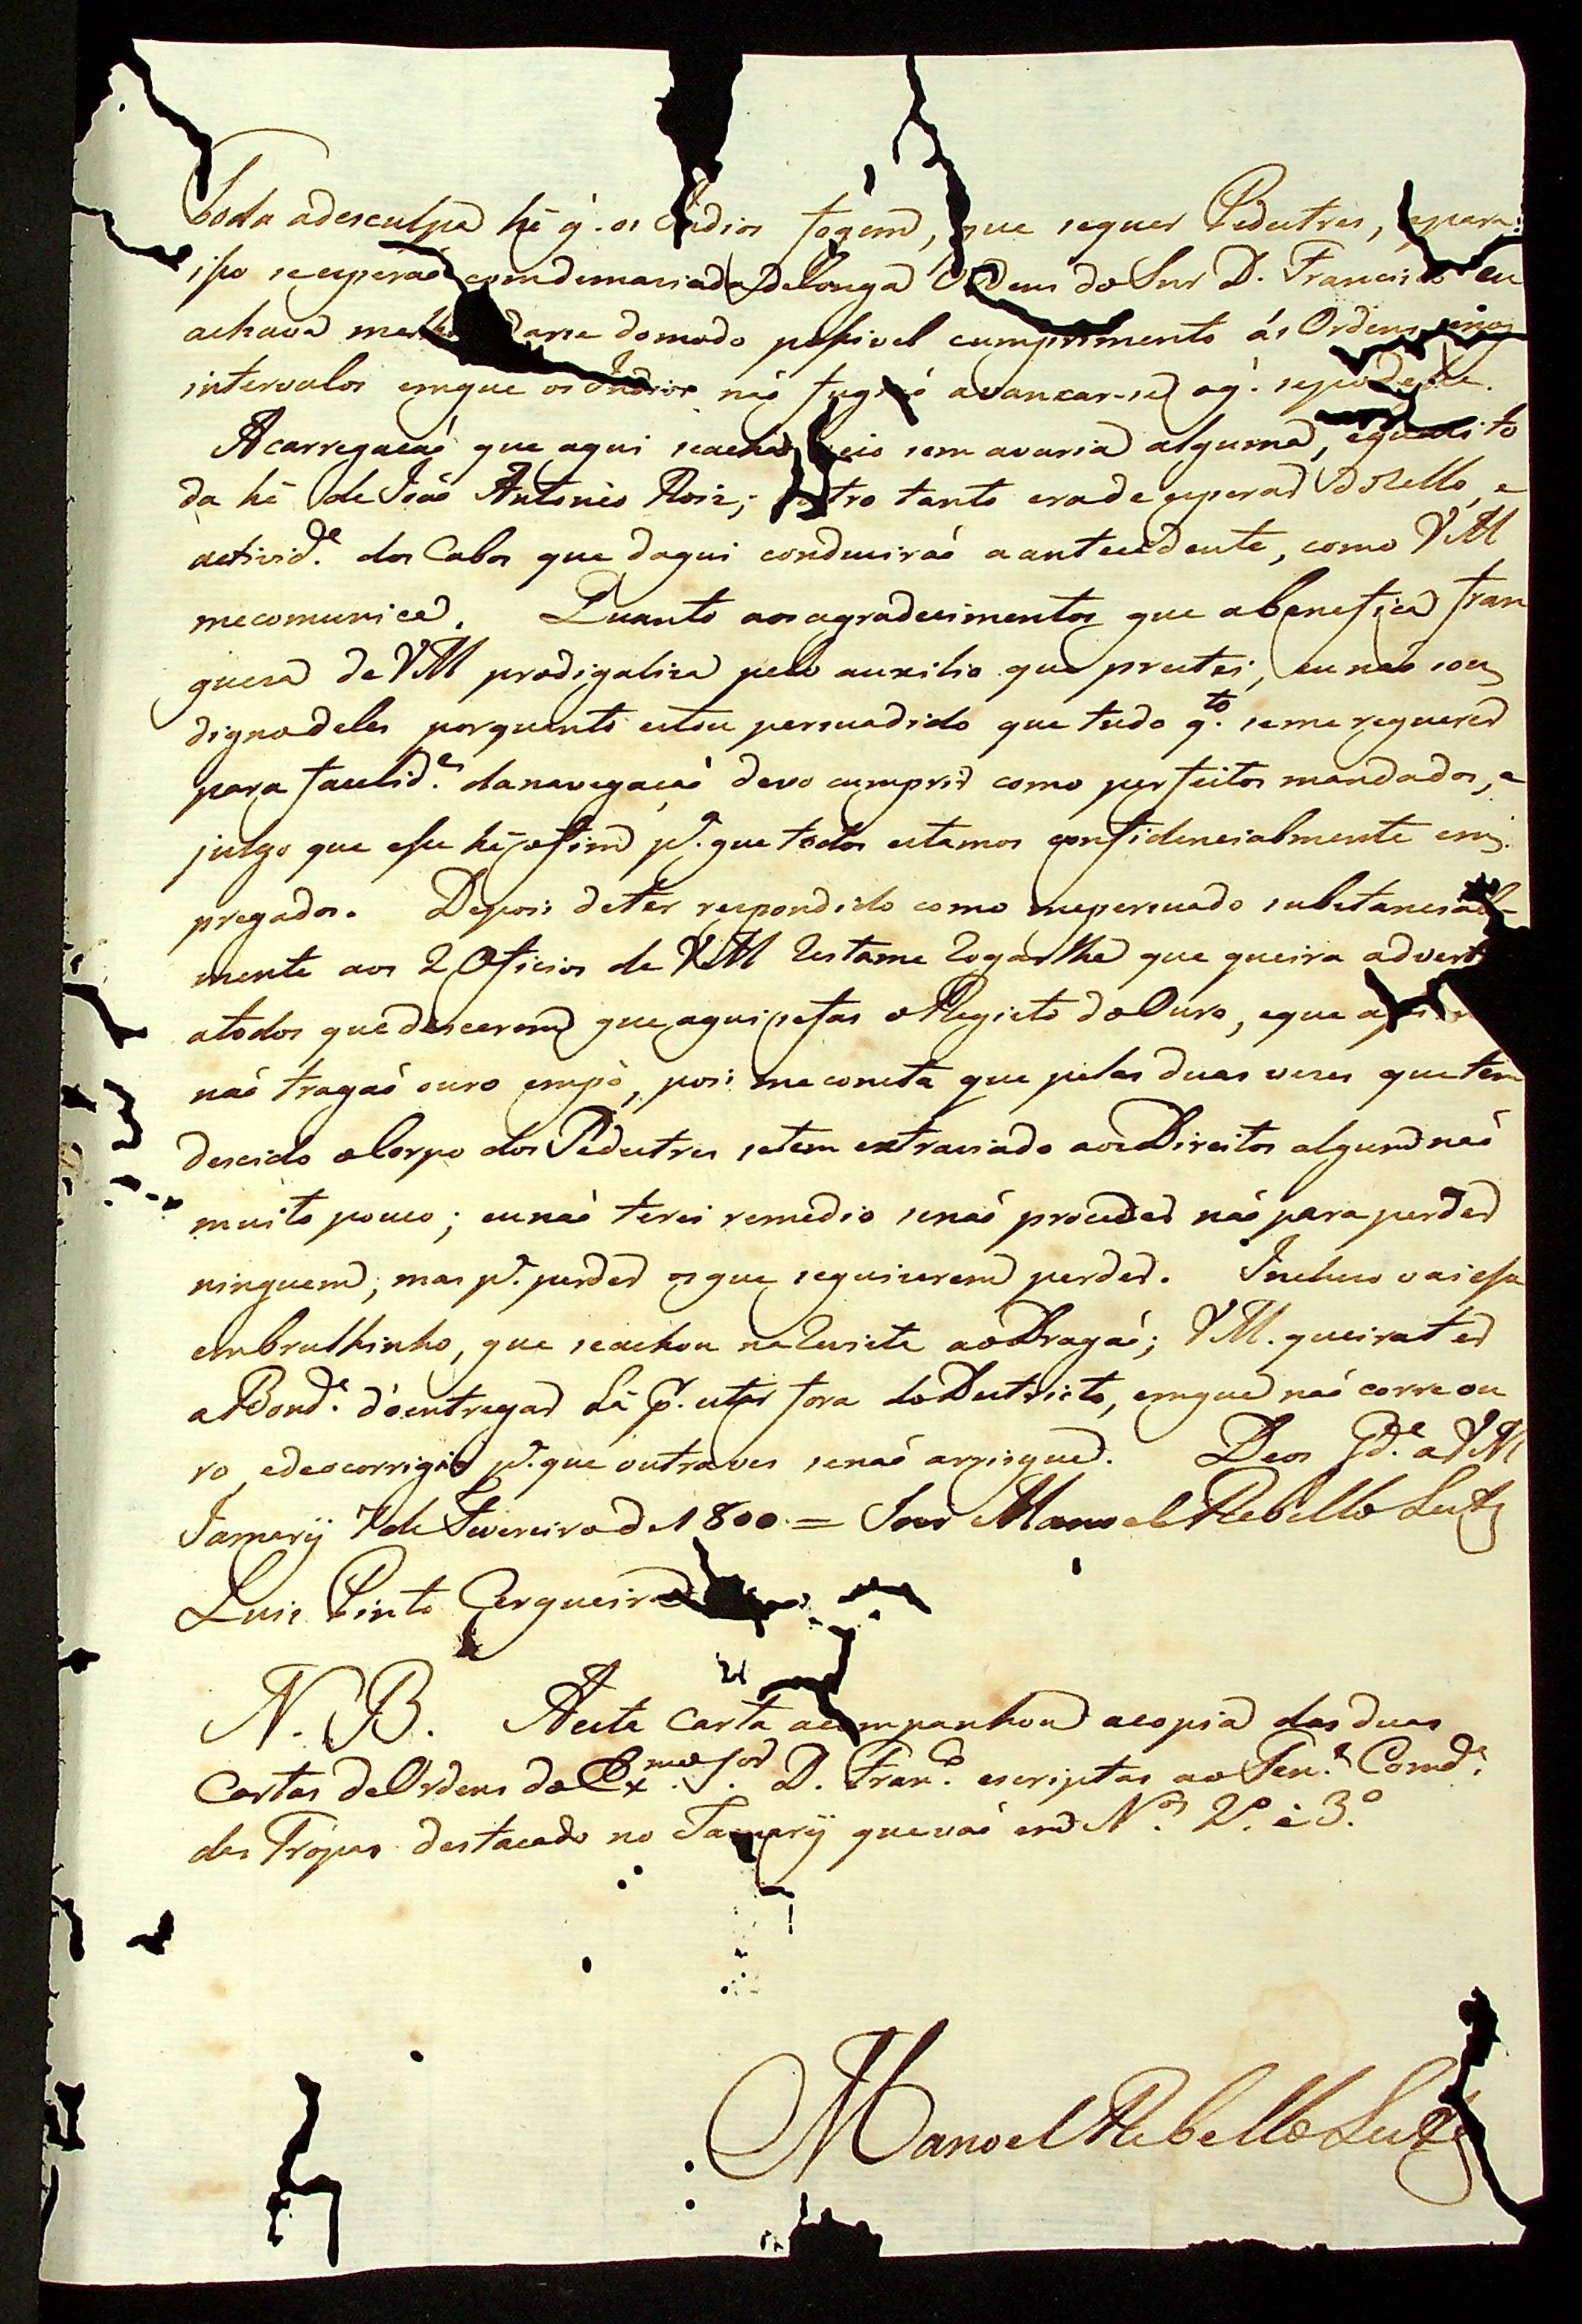 Toda adesculpa hé q̃. os Indios fogem, que sequer Pedestres, epara
isso seesperaõ comdemaziada delonga Ordens do Snr D. Francisco eu
achava darse domodo possivel cumprimento ás Ordens, enos
intervalos emque os Indios naõ avancar-se oq̃. sepodesse.
Acarregaçaõ que aqui seacha veio sem avaria alguma,
da hé de Joaõ Antonio Roiz; outro tanto erade esperar dozello, e
activid.e dos Cabos que daqui conduziraõ aantecedente, como VM
mecomunica. Quanto aosagradecimentos que abenefica fran
queza de VM prodigaliza pelo auxilio que prestei, eunaõ sou
dignodeles porquanto estou persuadido que tudo q.to seme requerer
para facelid.e danavegaçaõ devo cumprir como perfeitos mandados, e
julgo que esse hé ofim p.a que todos estamos confidencialmente em
pregados. Depois deter respondido como mepersuado substancial
mente aos 2 Oficios de VM Restame Rogarlhe que queira advert
atodos quedescerem que aqui sefas oRegisto doOuro, eque
naõ tragaõ ouro empó, pois meconsta que pelas duas vezes quetem
descido oCorpo dos Pedestres setem extraviado aosDireitos algum naõ
muito pouco; eunaõ terei remedio senaõ proceder naõ para perder
ninguem, mas p.a perder osque sequizerem perder. Incluzo vai esse
embrulhinho, que seachou naRevista aoDragaõ; VM. queira ter
aBond.e d'oentregar Lá p.r estar fora doDestricto, emque naõ corre ou
ro, edeocorrigir p.a que outraves senaõ arrisque. Deos G.de a VM
Jamarÿ 7 de Fevereiro de 1800 = Snr Manoel Rebello Leite
Luis Pinto Cerqueira
N. B. Aesta Carta acompanhou acopia das duas
Cartas deOrdens do Ex.mo Sor. D. Fran.co escriptas ao Ten.e Comd.e
das Tropas destacado no Jamarÿ quevaõ em N.os 2.º e 3.º
Manoel Rebello Leite